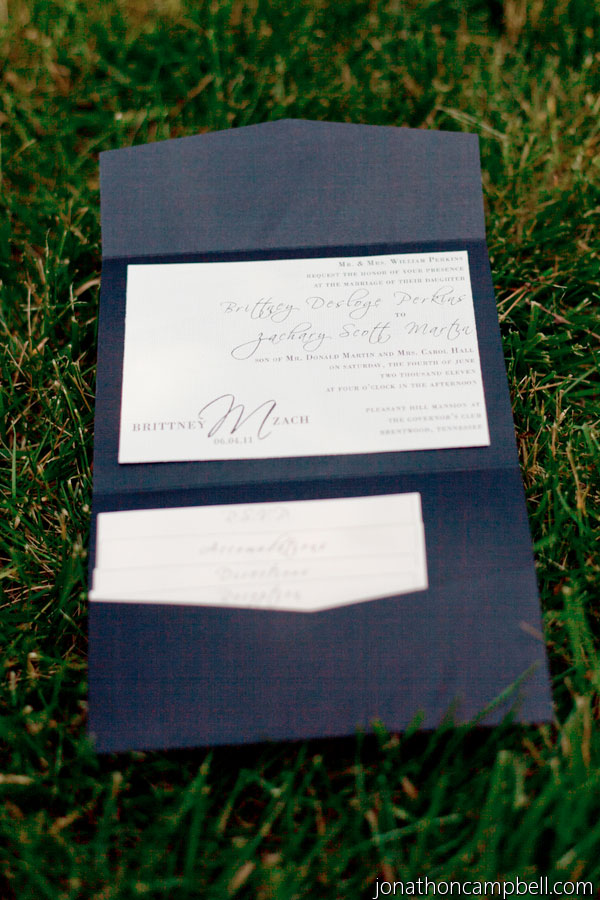 Mr. & Mrs. William Perkins
request the honor of your presence
at the marriage of their daughter
Brittney Desloge Perkins
to
Zachary Scott Martin
son of Mr. Donald Martin and Mrs. Carol Hall
on Saturday, the fourth of June
two thousand eleven
at four o'clock in the afternoon
Pleasant Hill Mansion at
the Governor's Club
Brentwood, Tennessee
BRITTNEY M ZACH
06.04.11
RSVP
Accomodations
Directions
Reception
jonathoncampbell.com